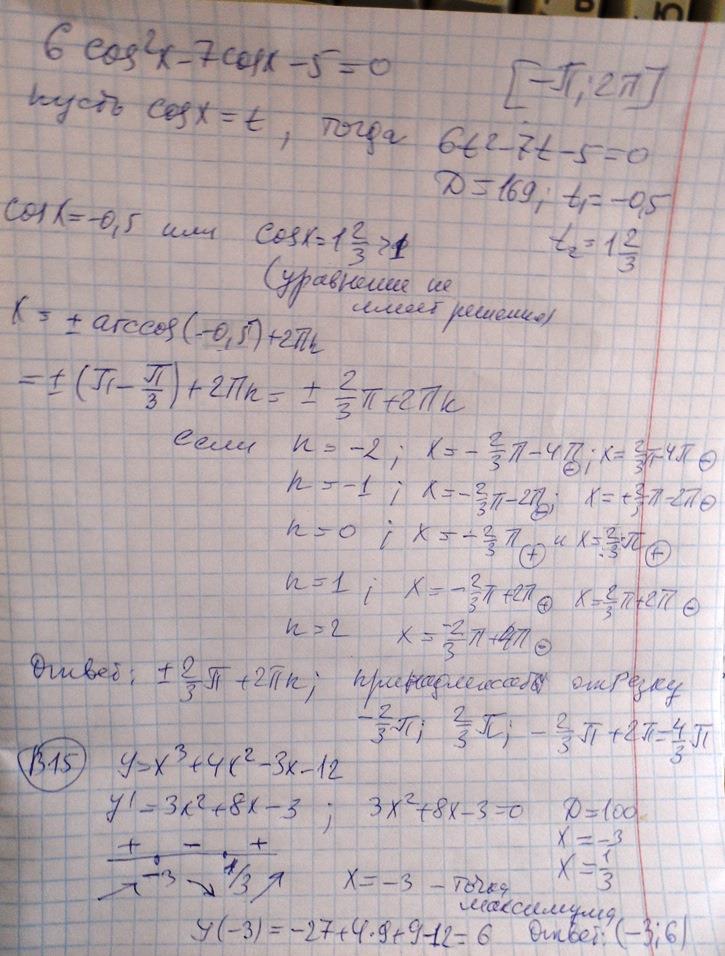 6 cos²x - 7cosx - 5 = 0 [-π; 2π]
пусть cosx = t, тогда 6t² - 7t - 5 = 0
D = 169; t₁ = -0,5
t₂ = 1 2/3
cosx = -0,5 или cosx = 1 2/3 > 1
(уравнение не
имеет решение)
x = ± arccos(-0,5) + 2πn
= ± (π - π/3) + 2πn = ± 2/3 π + 2πn
если n = -2; x = -2/3 π - 4π ⊖; x = 2/3 π - 4π ⊖
n = -1; x = -2/3 π - 2π ⊖; x = +2/3 π - 2π ⊖
n = 0; x = -2/3 π ⊕ и x = 2/3 π ⊕
n = 1; x = -2/3 π + 2π ⊕ x = 2/3 π + 2π ⊖
n = 2 x = -2/3 π + 4π ⊖
Ответ: ± 2/3 π + 2πn; принадлежат отрезку
-2/3 π; 2/3 π; -2/3 π + 2π = 4/3 π
B15 y = x³ + 4x² - 3x - 12
y' = 3x² + 8x - 3; 3x² + 8x - 3 = 0 D = 100
x = -3
x = 1/3
+ - +
-3 1/3
x = -3 - точка
максимума
y(-3) = -27 + 4·9 + 9 - 12 = 6 Ответ: (-3; 6)